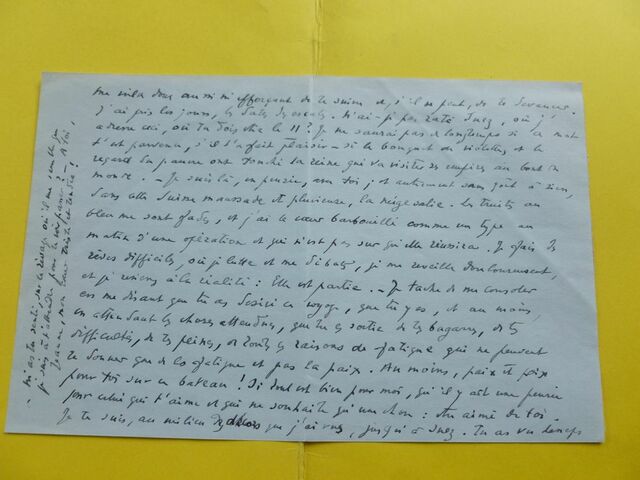 Me voilà donc aussi m'efforçant de te suivre et, s'il se peut, de te devancer.
J'ai pris les jours, les dates, les escales. N'ai-je pas raté Suez, où j'
adresse ceci, où tu dois être le 11? Je ne saurai pas de longtemps si ce mot
t'est parvenu, s'il t'a fait plaisir – si le bouquet de violettes et le
regard ont touché la reine qui va visiter ses empires au bout du
monde. – Je suis là, en pensée, avec toi; et autrement sans goût à rien,
Dans cette Suisse maussade et pluvieuse, la neige salie. Les truites au
bleu me sont fades, et j'ai le cœur barbouillé comme un type au
matin d'une opération et qui n'est pas sûr qu'elle réussira. Je fais des
rêves difficiles, où je lutte et me débats, je me réveille douloureusement,
et je reviens à la réalité : Elle est partie. – Je tâche de me consoler
en me disant que tu as désiré ce voyage, que tu y es, et au moins,
en attendant les choses attendues, que tu es sortie de tes bagarres, de tes
difficultés, de tes peines, de toutes les raisons de fatigue qui ne peuvent
te donner que de la fatigue et pas la paix. Au moins, paix et joie
pour toi sur ce bateau! Si tout est bien pour moi, qu'il y ait une pensée
pour celui qui t'aime et qui ne souhaite qu'une chose : être aimé de toi.
Je te suis, au milieu des que j'ai vus, jusqu'à Suez. Tu as vu
– M'as-tu senti, sur ce rivage où il me semble que
je suis à t'attendre pour te voir passer? A toi,
Jeanne, mon cœur triste et tendre!